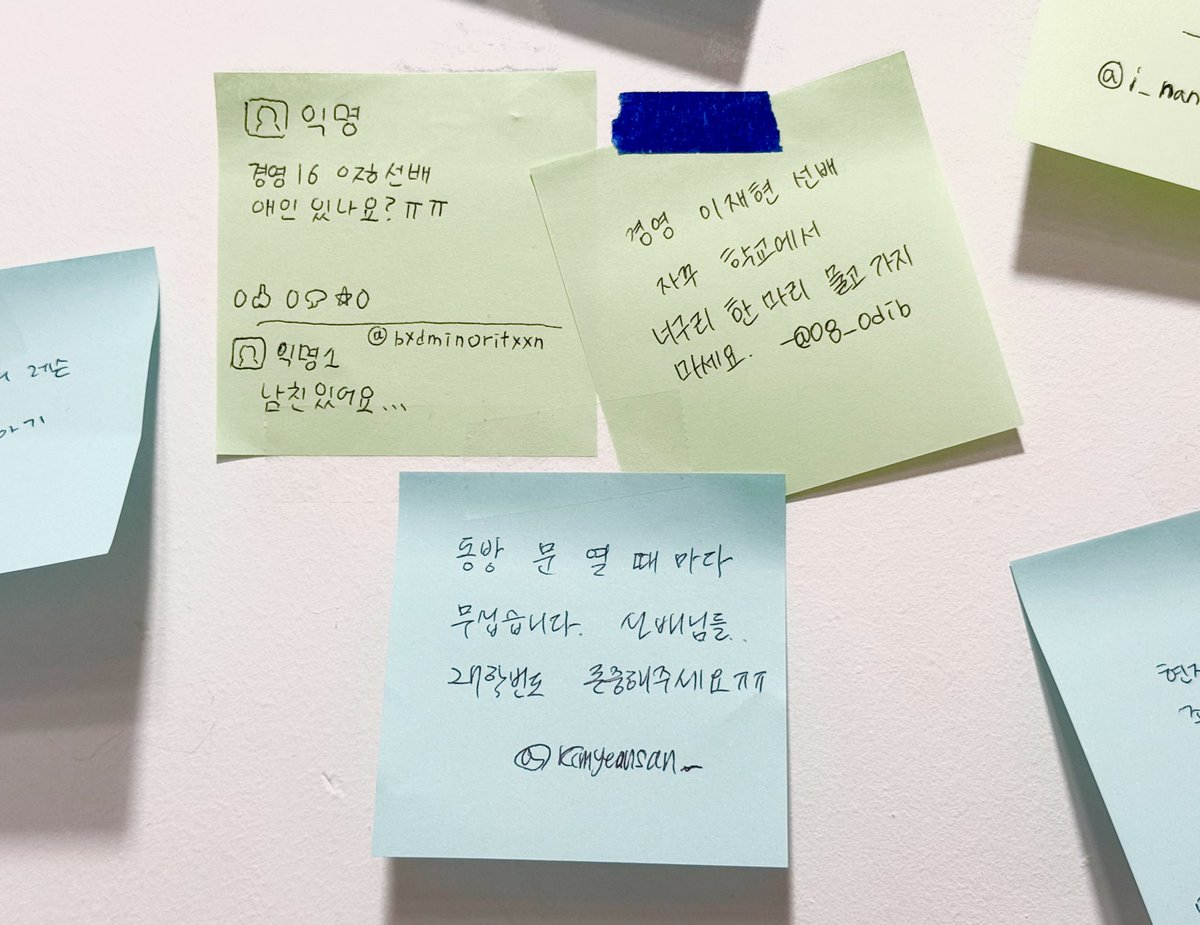 익명
경영16 ㅇㅈㅎ선배
애인 있나요?ㅠㅠ
0 0 0
@bxdminoritxxn
익명1
남친있어요...
경영 이재현 선배
자꾸 학교에서
너구리 한 마리 몰고 가지
마세요. -@08_0dib
동방 문 열 때 마다
무섭습니다. 선배님들..
21학번도 존중해주세요ㅠㅠ
@kimyeansan_
@i_nan
레슨
아기